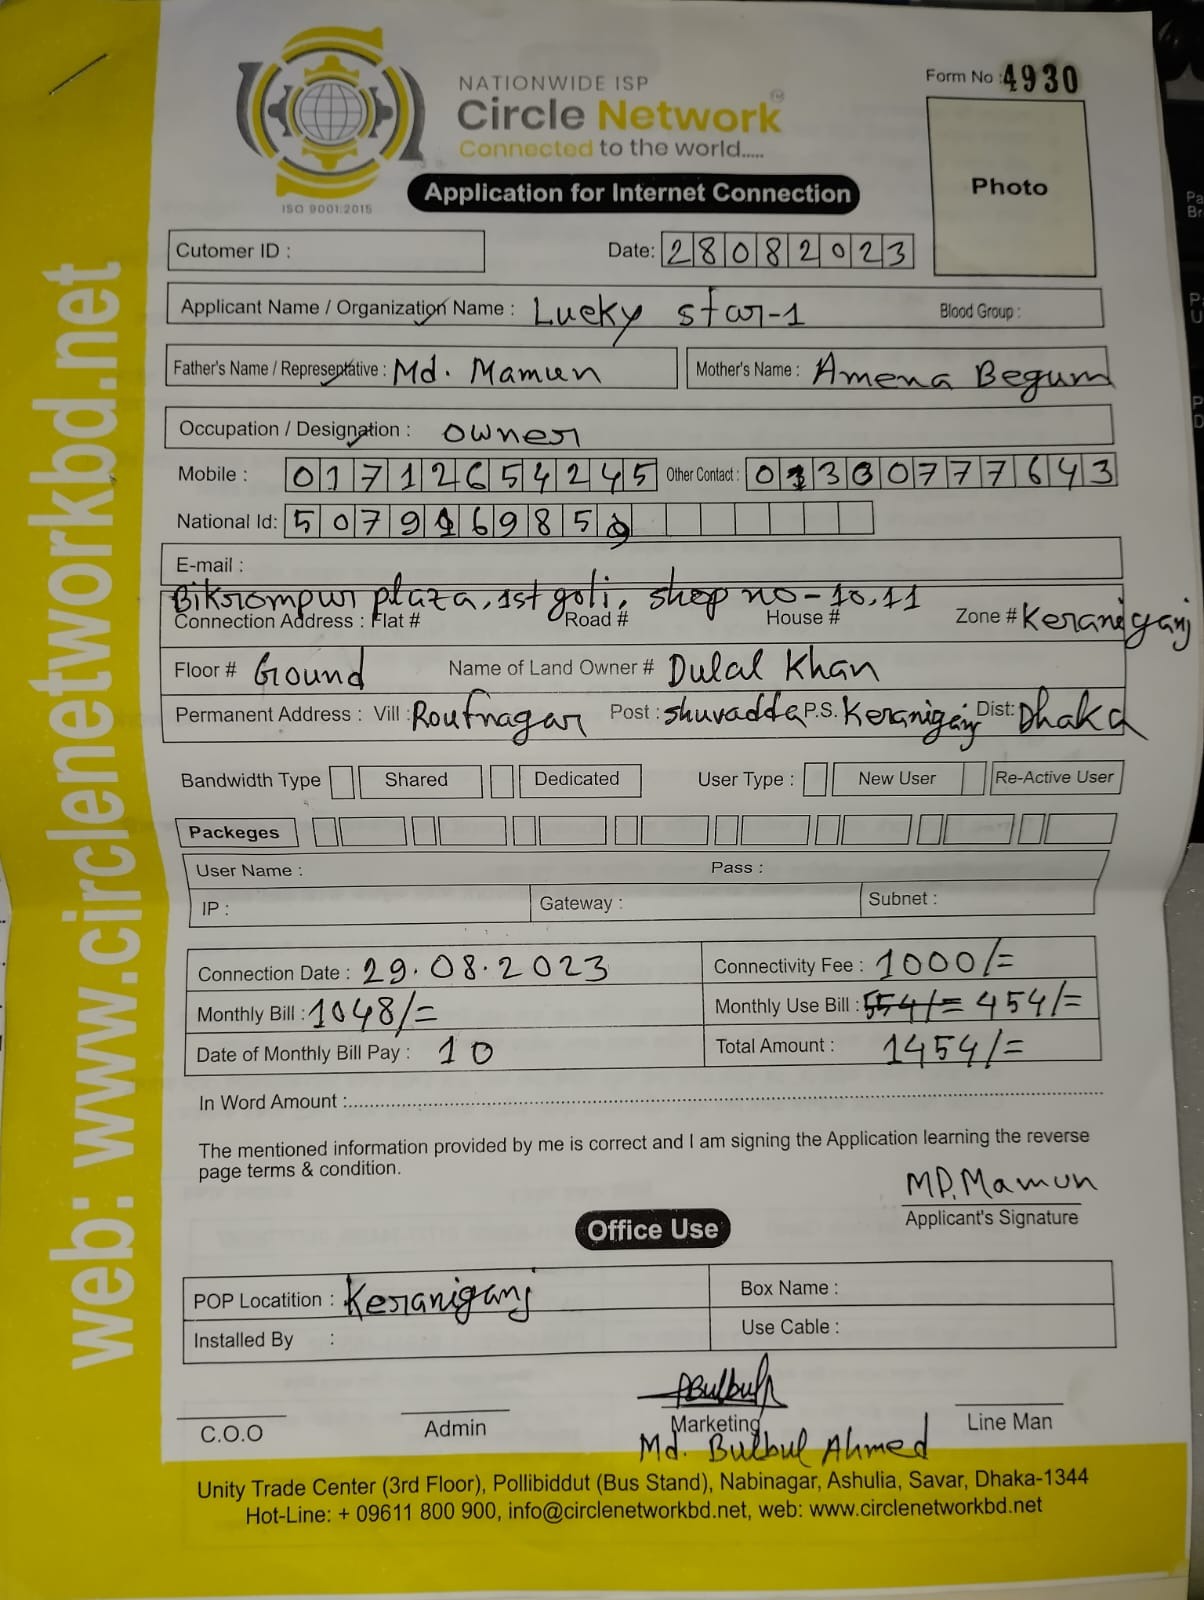 NATIONWIDE ISP
Circle Network
Connected to the world.....
ISO 9001:2015
Form No : 4930
Photo
Application for Internet Connection
Cutomer ID :
Date: 28082023
Applicant Name / Organization Name : Lucky star-1 Blood Group :
Father's Name / Representative : Md. Mamun Mother's Name : Amena Begum
Occupation / Designation : owner
Mobile : 01712654245 Other Contact : 01300777643
National Id: 507916985
E-mail :
Bikrompur plaza, 1st goli, shop no-10,11
Connection Address : Flat # Road # House # Zone # Keraniganj
Floor # Ground Name of Land Owner # Dulal Khan
Permanent Address : Vill : Roufnagar Post : shuvadda P.S. Keraniganj Dist: Dhaka
Bandwidth Type Shared Dedicated User Type : New User Re-Active User
Packeges
User Name : Pass :
IP : Gateway : Subnet :
Connection Date : 29.08.2023 Connectivity Fee : 1000/=
Monthly Bill : 1048/= Monthly Use Bill : 554/= 454/=
Date of Monthly Bill Pay : 10 Total Amount : 1454/=
In Word Amount :
The mentioned information provided by me is correct and I am signing the Application learning the reverse
page terms & condition.
MD. Mamun
Applicant's Signature
Office Use
POP Locatition : Keraniganj Box Name :
Installed By : Use Cable :
Bulbul
C.O.O Admin Marketing Line Man
Md. Bulbul Ahmed
Unity Trade Center (3rd Floor), Pollibiddut (Bus Stand), Nabinagar, Ashulia, Savar, Dhaka-1344
Hot-Line: + 09611 800 900, info@circlenetworkbd.net, web: www.circlenetworkbd.net
web: www.circlenetworkbd.net